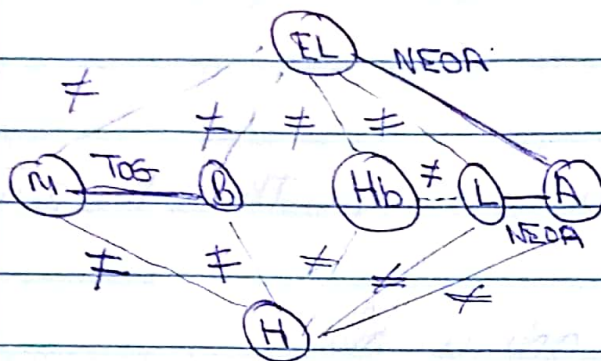 EL NEDA
≠
≠ ≠ ≠
M TOG B Hb ≠ L A
NEDA
≠ ≠ ≠ ≠ ≠
H